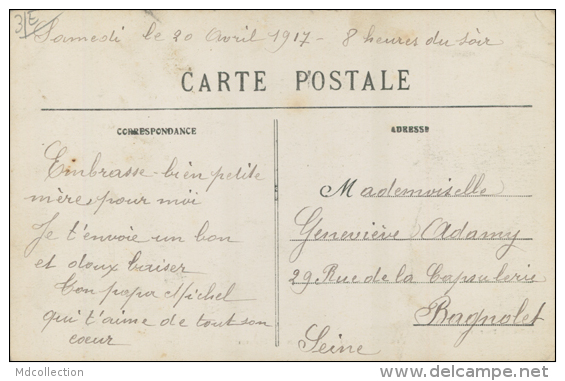 3/E
Samedi le 20 Avril 1917 - 8 heures du soir
CARTE POSTALE
CORRESPONDANCE
ADRESSE
Embrasse bien petite
mère, pour moi
Je t'envoie un bon
et doux baiser
Ton papa Michel
qui t'aime de tout son
coeur
Mademoiselle
Geneviève Adamy
29 Rue de la Capsulerie
Bagnolet
Seine
Mdcollection
delcampe.net